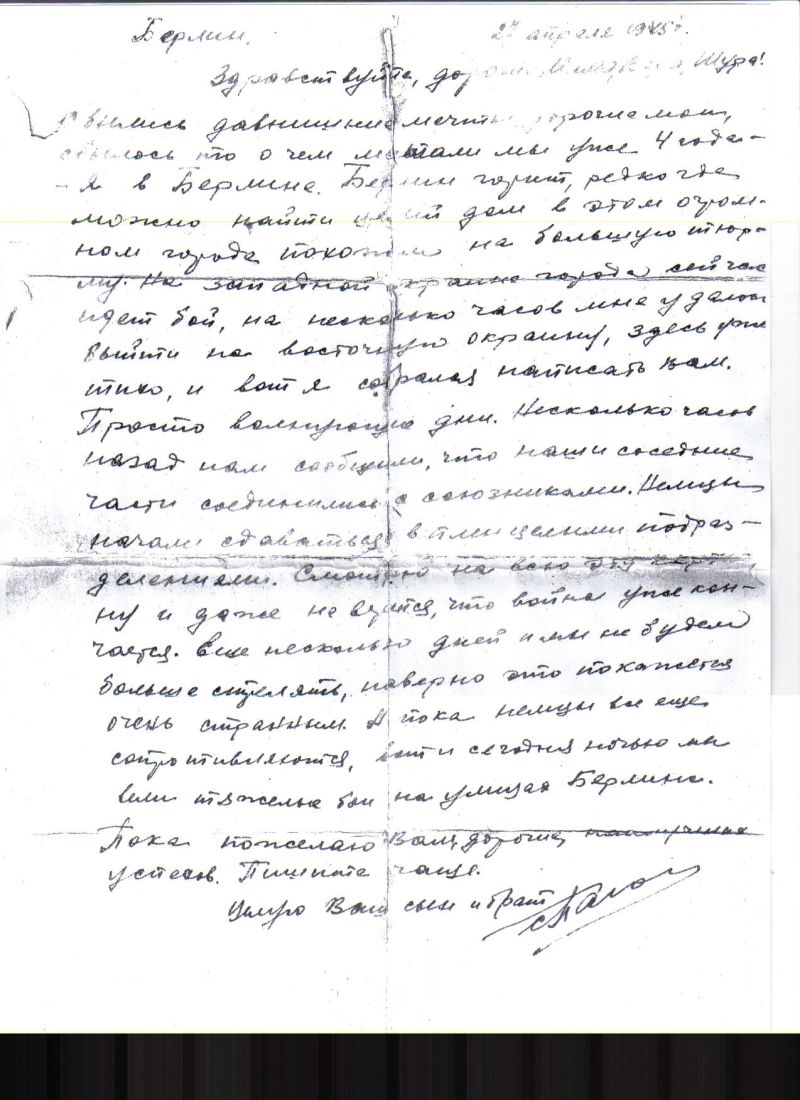 Берлин. апреля 1945г.
Здравствуйте, дорогие Шура!
сбылись давнишние мечты, дорогие мои,
сбылось то о чем мечтали мы уже 4 года –
– я в Берлине. Берлин горит, редко где
можно найти целый дом в этом огром-
ном городе похожем на большую тюрь-
му. На западной окраине города сейчас
идет бой, на несколько часов мне удалось
выйти на восточную окраину, здесь уже
тихо, и вот я собрался написать вам.
Просто волнующие дни. Несколько часов
назад нам сообщили, что наши соседние
части соединились с союзниками. Немцы
начали сдаваться в плен целыми подраз-
делениями. Смотрю на всю эту карти-
ну и даже не верится, что война уже кон-
чается. Еще несколько дней и мы не будем
больше стрелять, наверно это покажется
очень странным. А пока немцы все еще
сопротивляются, вот и сегодня ночью мы
вели тяжелые бои на улицах Берлина.
Пока пожелаю Вам, дорогие, наилучших
успехов. Пишите чаще.
Целую Ваш сын и брат